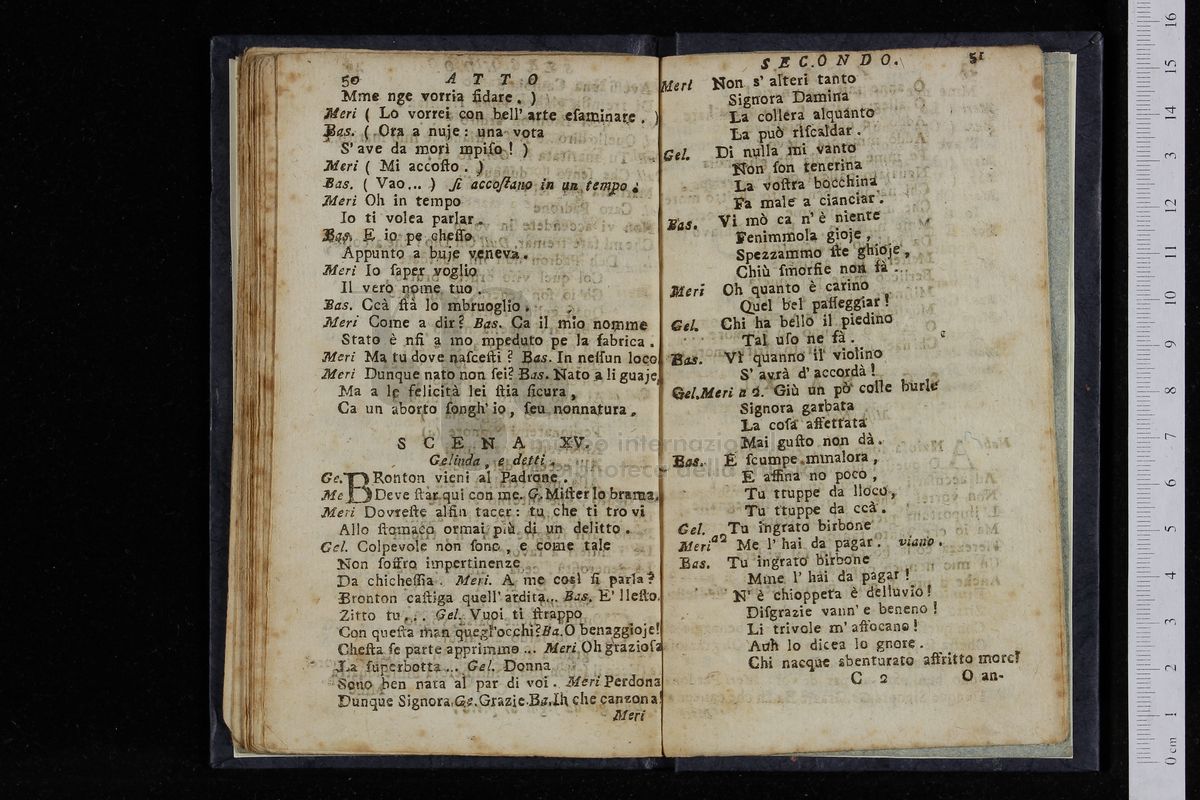 50 ATTO
Mme nge vorria fidare. )
Meri ( Lo vorrei con bell' arte esaminare. )
Bas. ( Ora a nuje: una vota
S' ave da morì mpiso! )
Meri ( Mi accosto. )
Bas. ( Vao... ) si accostano in un tempo.
Meri Oh in tempo
Io ti volea parlar.
Bas. E io pe chesso
Appunto a buje veneva.
Meri Io saper voglio
Il vero nome tuo.
Bas. Ccà stà lo mbruoglio.
Meri Come a dir? Bas. Ca il mio nomme
Stato è nfi a mo mpeduto pe la fabrica.
Meri Ma tu dove nascesti? Bas. In nessun loco
Meri Dunque nato non sei? Bas. Nato a li guaje,
Ma a le felicità lei stia sicura,
Ca un aborto songh' io, seu nonnatura.
SCENA XV.
Gelinda, e detti.
Ge. BRonton vieni al Padrone.
Me Deve star quì con me. G. Mister lo brama.
Meri Dovreste alfin tacer: tu che ti trovi
Allo stomaco ormai più di un delitto.
Gel. Colpevole non sono, e come tale
Non soffro impertinenze
Da chichessia. Meri. A me così si parla?
Bronton castiga quell' ardita... Bas. E' llesto.
Zitto tu... Gel. Vuoi ti strappo
Con questa man quegl' occhi? Ba. O benaggioje!
Chesta se parte apprimmo... Meri Oh graziosa
La superbotta... Gel. Donna
Sono ben nata al par di voi. Meri Perdona
Dunque Signora. Ge. Grazie. Ba. Ih che canzona!
Meri
SECONDO. 51
Meri Non s' alteri tanto
Signora Damina
La collera alquanto
La può riscaldar.
Gel. Di nulla mi vanto
Non son tenerina
La vostra bocchina
Fa male a cianciar.
Bas. Vi mò ca n' è niente
Fenimmola gioje,
Spezzammo ste ghioje,
Chiù smorfie non fà...
Meri Oh quanto è carino
Quel bel passeggiar!
Gel. Chi ha bello il piedino
Tal uso ne fà.
Bas. Vi quanno il violino
S' avrà d' accordà!
Gel. Meri a 2. Giù un pò colle burle
Signora garbata
La cosa affettata
Mai gusto non dà.
Bas. E scumpe mmalora,
E affina no poco,
Tu truppe da lloco,
Tu truppe da ccà.
Gel. Tu ingrato birbone
Meri a2 Me l' hai da pagar. viano.
Bas. Tu ingrato birbone
Mme l' hai da pagar!
N' è chioppeta è delluvio!
Disgrazie vann' e beneno!
Li trivole m' affocano!
Auh lo dicea lo gnore.
Chi nacque sbenturato affritto more!
C 2 O an-